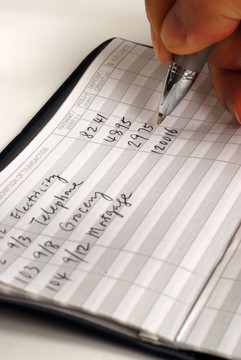 Electricity 82 41
2 9/3 Telephone 48 95
103 9/8 Grocery 29 75
104 9/12 Mortgage 1200 16